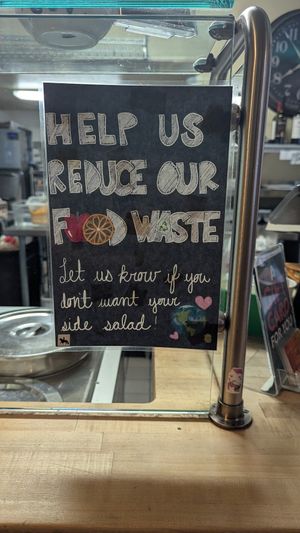 HELP US
REDUCE OUR
FOOD WASTE
Let us know if you
don't want your
side salad!